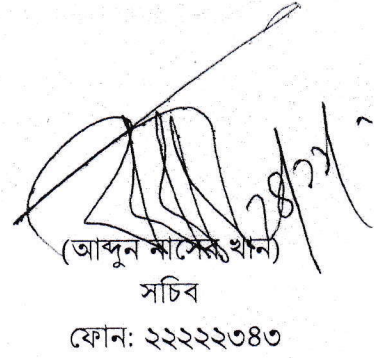 ২৪/১১/২
(আব্দুন নাসের খান)
সচিব
ফোন: ২২২২২৩৪৩